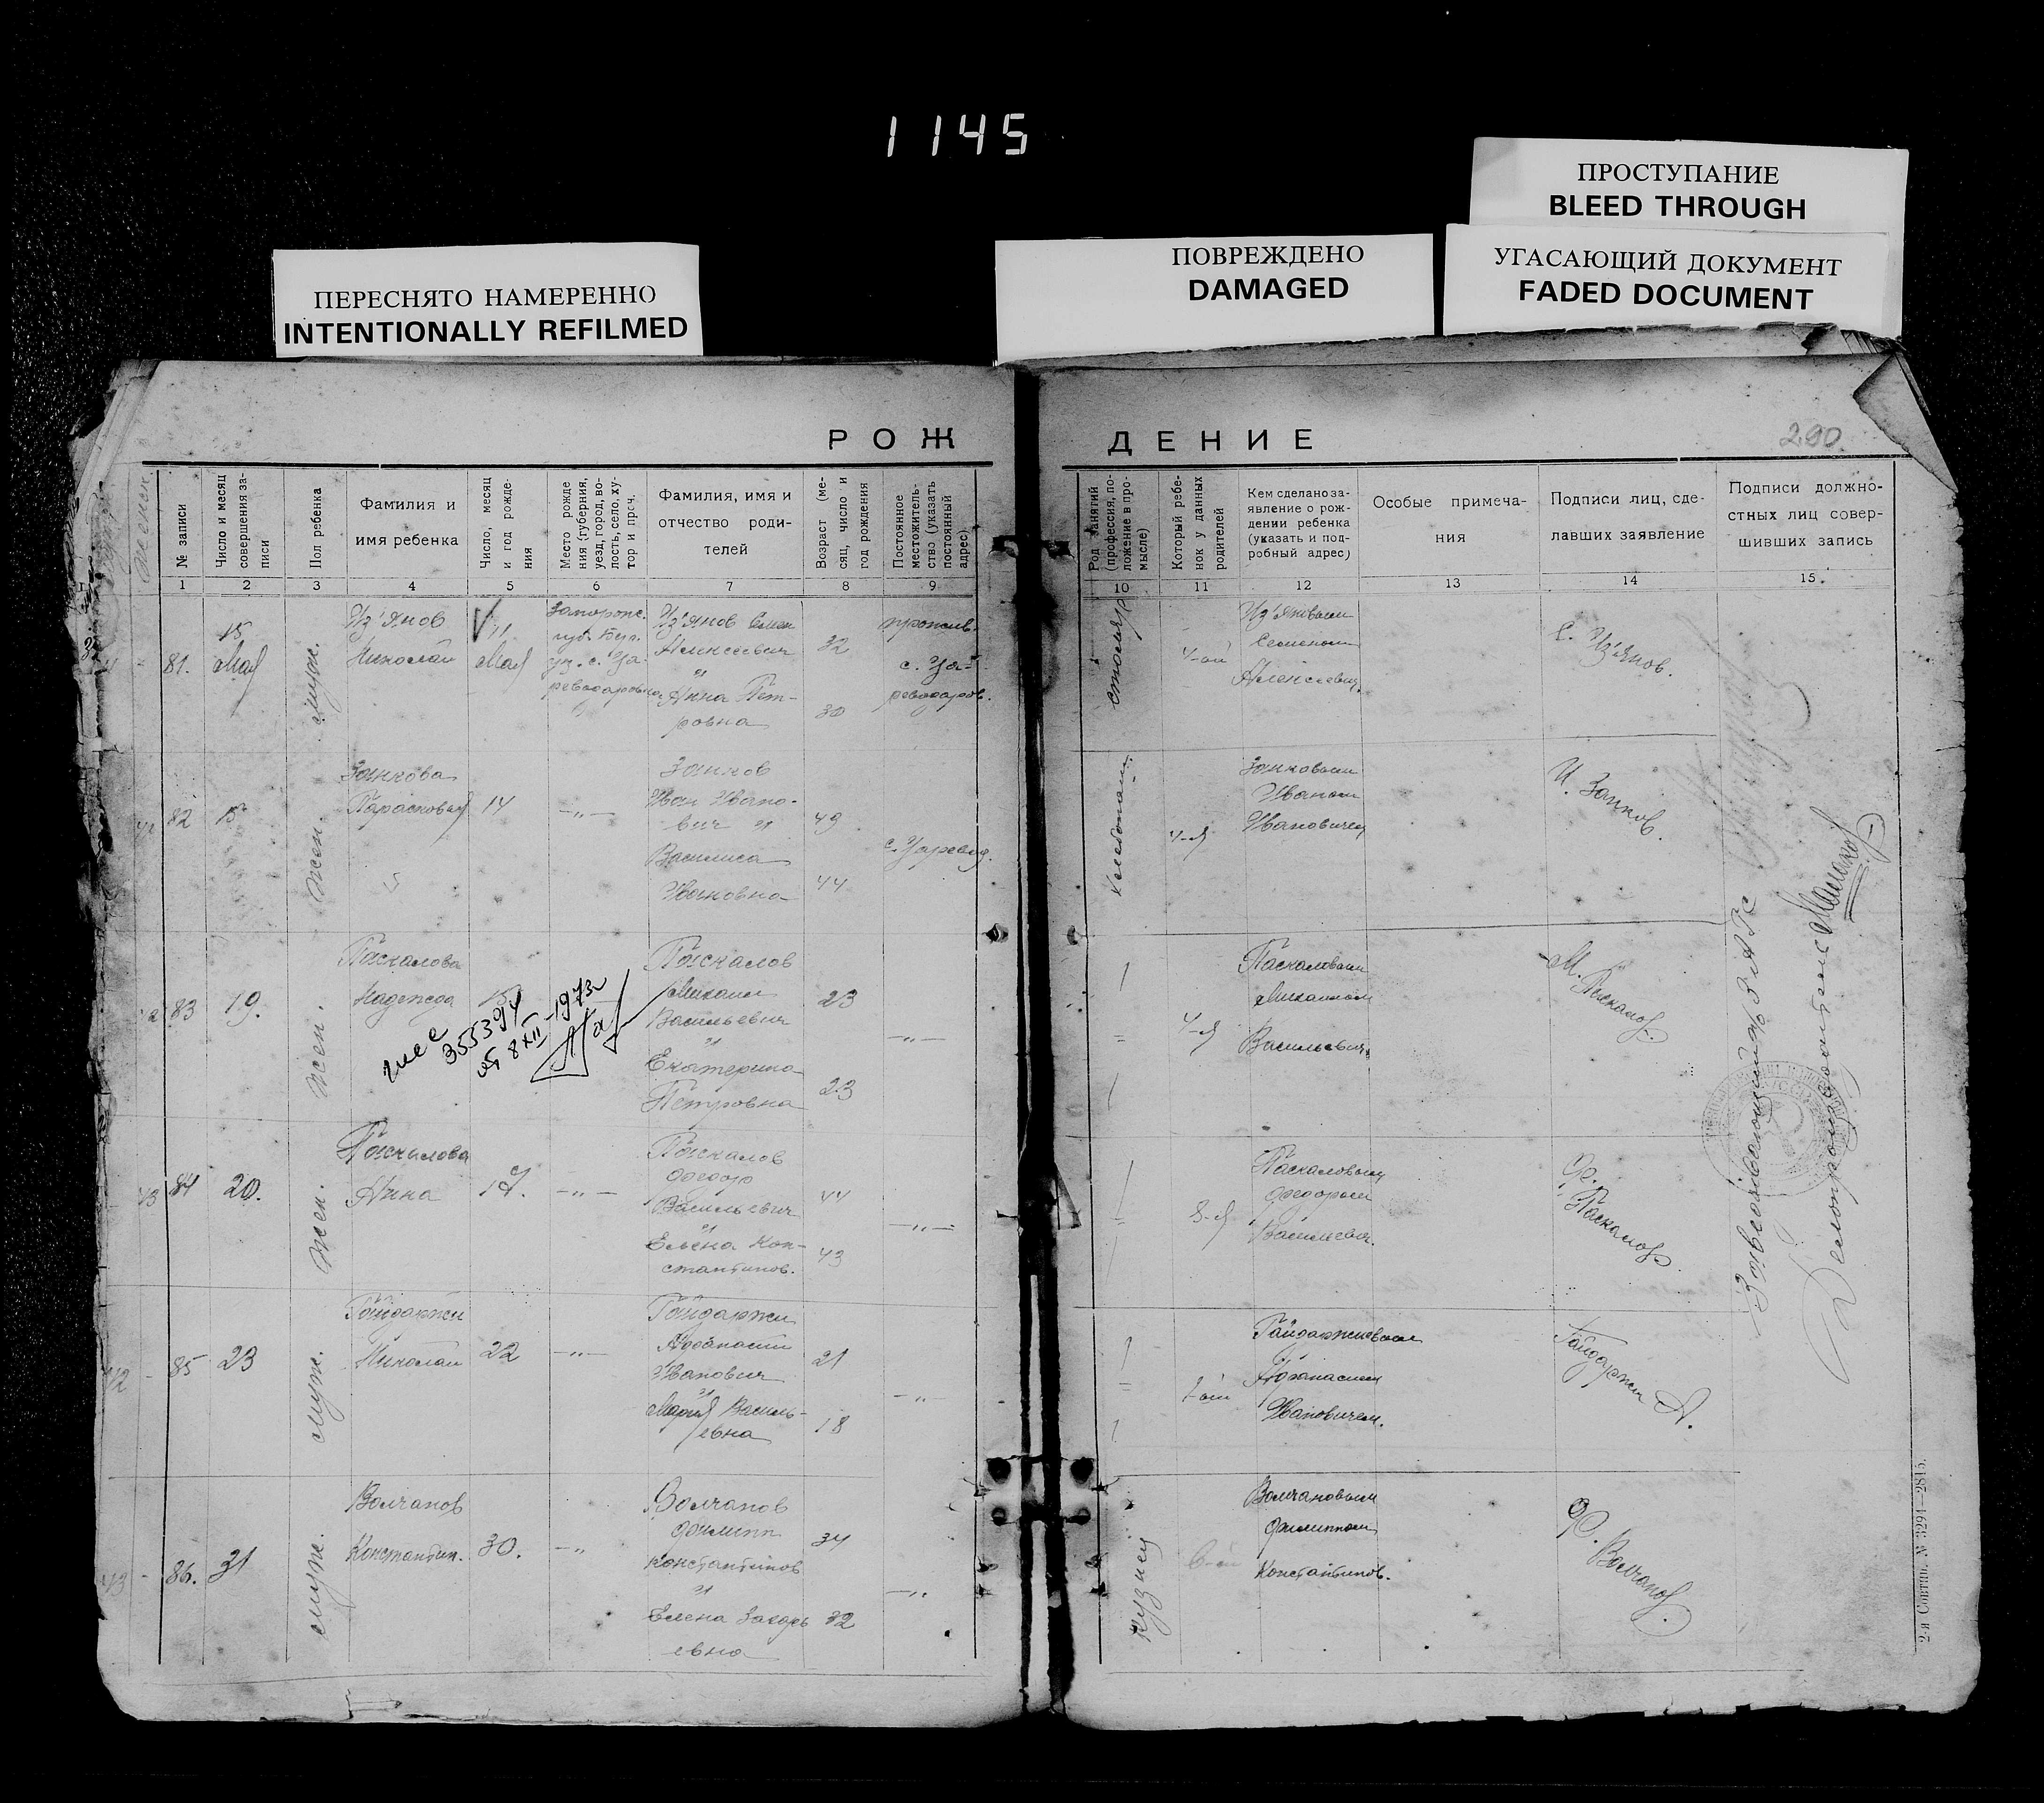 1145
ПРОСТУПАНИЕ
BLEED THROUGH
ПЕРЕСНЯТО НАМЕРЕННО
INTENTIONALLY REFILMED
ПОВРЕЖДЕНО
DAMAGED
УГАСАЮЩИЙ ДОКУМЕНТ
FADED DOCUMENT
РОЖДЕНИЕ
290
№ записи
Число и месяц
совершения за-
писи
Пол ребенка
Фамилия и
имя ребенка
Число, месяц
и год рожде-
ния
Место рожде
ния (губерния,
уезд, город, во-
лость, село, ху-
тор и проч.
Фамилия, имя и
отчество роди-
телей
Возраст (ме-
сяц, число и
год рождения
Постоянное
местожитель-
ство (указать
постоянный
адрес)
Род занятий
(профессия, по-
ложение в про-
мысле)
Который ребе-
нок у данных
родителей
Кем сделано за-
явление о рож-
дении ребенка
(указать и под-
робный адрес)
Особые примеча-
ния
Подписи лиц, сде-
лавших заявление
Подписи должно-
стных лиц совер-
шивших запись
1 2 3 4 5 6 7 8 9 10 11 12 13 14 15.
81.
15
Мая
муж.
Из'янов
Николай
11
Мая
Из'янов Семен
Алексеевич
"
Анна Пет-
ровна
32
30
столяр
4-ой
Из'яновым
Семеном
С. Из'янов.
82
15
жен.
Занкова
Парасковья
14
-"-
Занков
Иван Ивано-
вич "
Василиса
Ивановна
49
44
4-я
Занковым
Иваном
Ивановичем
И. Занков.
83
19.
жен.
Паскалова
Надежда
15
355394
от 8 XII-1973г
Паскалов
Михаил
Васильевич
"
Екатерина
Петровна
23
23
-"-
4-я
Паскаловым
Михаилом
М. Паскалов.
84
20.
жен.
Паскалова
Анна
-"-
Паскалов
Федор
Васильевич
"
Елена Кон-
стантинов.
44
43
-"-
8-я
Паскаловым
Федором
Ф. Паскалов.
85
23
муж.
Гайдаржи
Николай
22
-"-
Гайдаржи
Афанасий
Иванович
"
Мария Василь-
евна
21
18
-"-
Гайдаржиевым
Афанасием
Ивановичем.
Гайдаржи А.
86.
31
муж.
Волчанов
Константин.
30.
-"
Волчанов
Филипп
Константинов
"
Елена Захарь
евна
34
32
-"
кузнец
6-ой
Волчановым
Филиппом
Константинов.
Ф. Волчанов.
Заведывающий ЗАГС
Делопроизводитель
2-я Совтип. № 3294—2815.